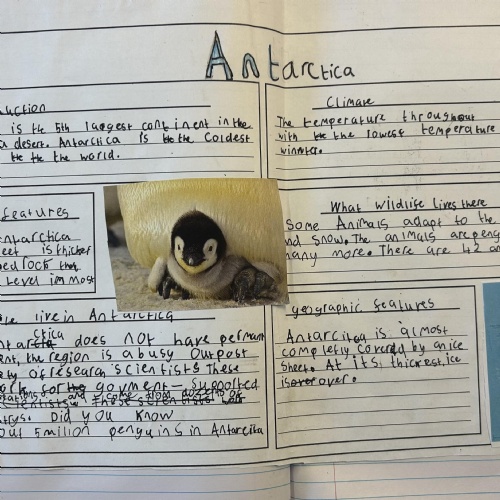 Antarctica
uction
is the 5th largest continent in the
a desert. Antarctica is the coldest
the the world.
Climate
The temperature throughout
with the the lowest temperature
winter.
features
ntarctica
eet is thicker
bedrock that
level im most
What wildlife lives there
Some Animals adapt to the
nd snow. The animals are peng
many more. There are 42 an
live in Antarctica
ctica
does not have perment
ent, the region is a busy Outpost
of research scientists These
for the goyment - supported
and come from dozens of
scientists. These scientists work
Did you know
out 5 million penguins in Antarctica
geographic features
Antarcitca is almost
completly covered by an ice
sheet. At its thickest, ice
is over over.